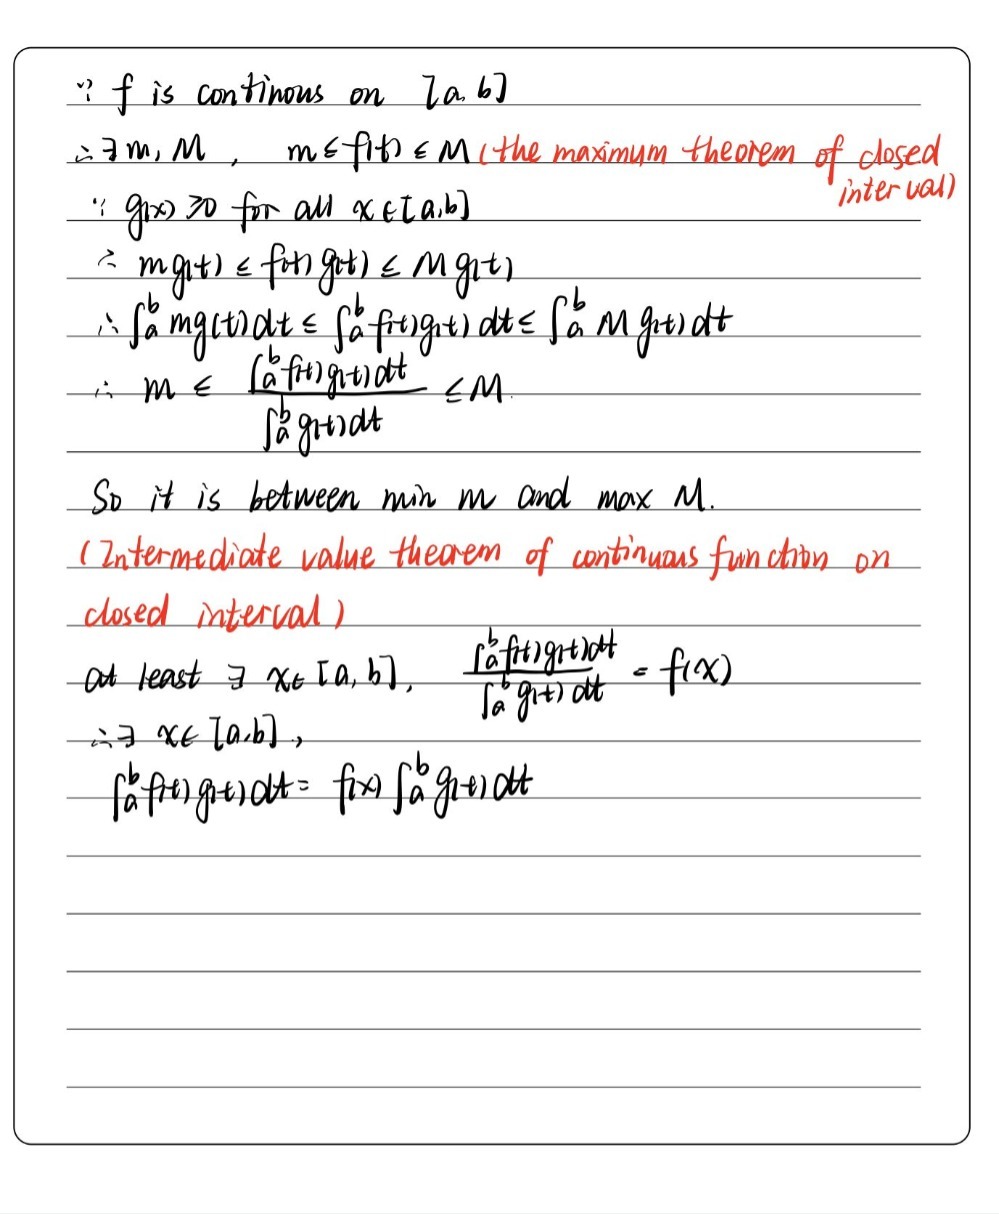 ∵ f is continous on [a, b]
∴ ∃ m, M , m ≤ f(t) ≤ M (the maximum theorem of closed
interval)
∵ g(x) ≥0 for all x ∈ [a,b]
∴ m g(t) ≤ f(t) g(t) ≤ M g(t)
∴ ∫ₐᵇ m g(t) dt ≤ ∫ₐᵇ f(t) g(t) dt ≤ ∫ₐᵇ M g(t) dt
∴ m ≤ ∫ₐᵇ f(t) g(t) dt / ∫ₐᵇ g(t) dt ≤ M.
So it is between min m and max M.
(Intermediate value theorem of continuous function on
closed interval)
at least ∃ x ∈ [a, b], ∫ₐᵇ f(t) g(t) dt / ∫ₐᵇ g(t) dt = f(x)
∴ ∃ x ∈ [a,b],
∫ₐᵇ f(t) g(t) dt = f(x) ∫ₐᵇ g(t) dt